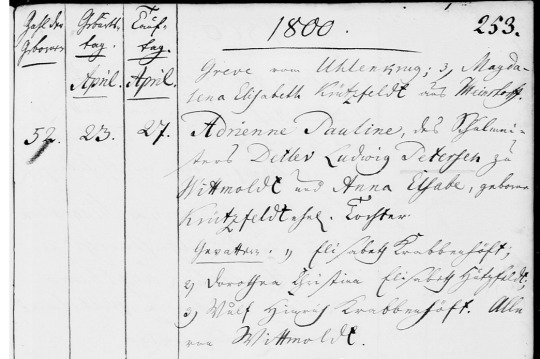 1800. 253.
Zahl der Geborenen Geburts-tag. Tauf-tag.
April. April.
Greve vom Uhlenkrug; 3, Magda-
lena Elisabeth Krützfeldt aus
52. 23. 27. Adrienne Pauline, des Schulmei-
sters Detlev Ludwig Petersen zu
Wittmoldt und Anna Elsabe, geborne
Krützfeldt ehel. Tochter.
Gevattern: 1, Elisabeth Krabbenhöft;
2, Dorothea Christina Elisabeth
3, Wulf Hinrich Krabbenhöft. Alle
von Wittmoldt.